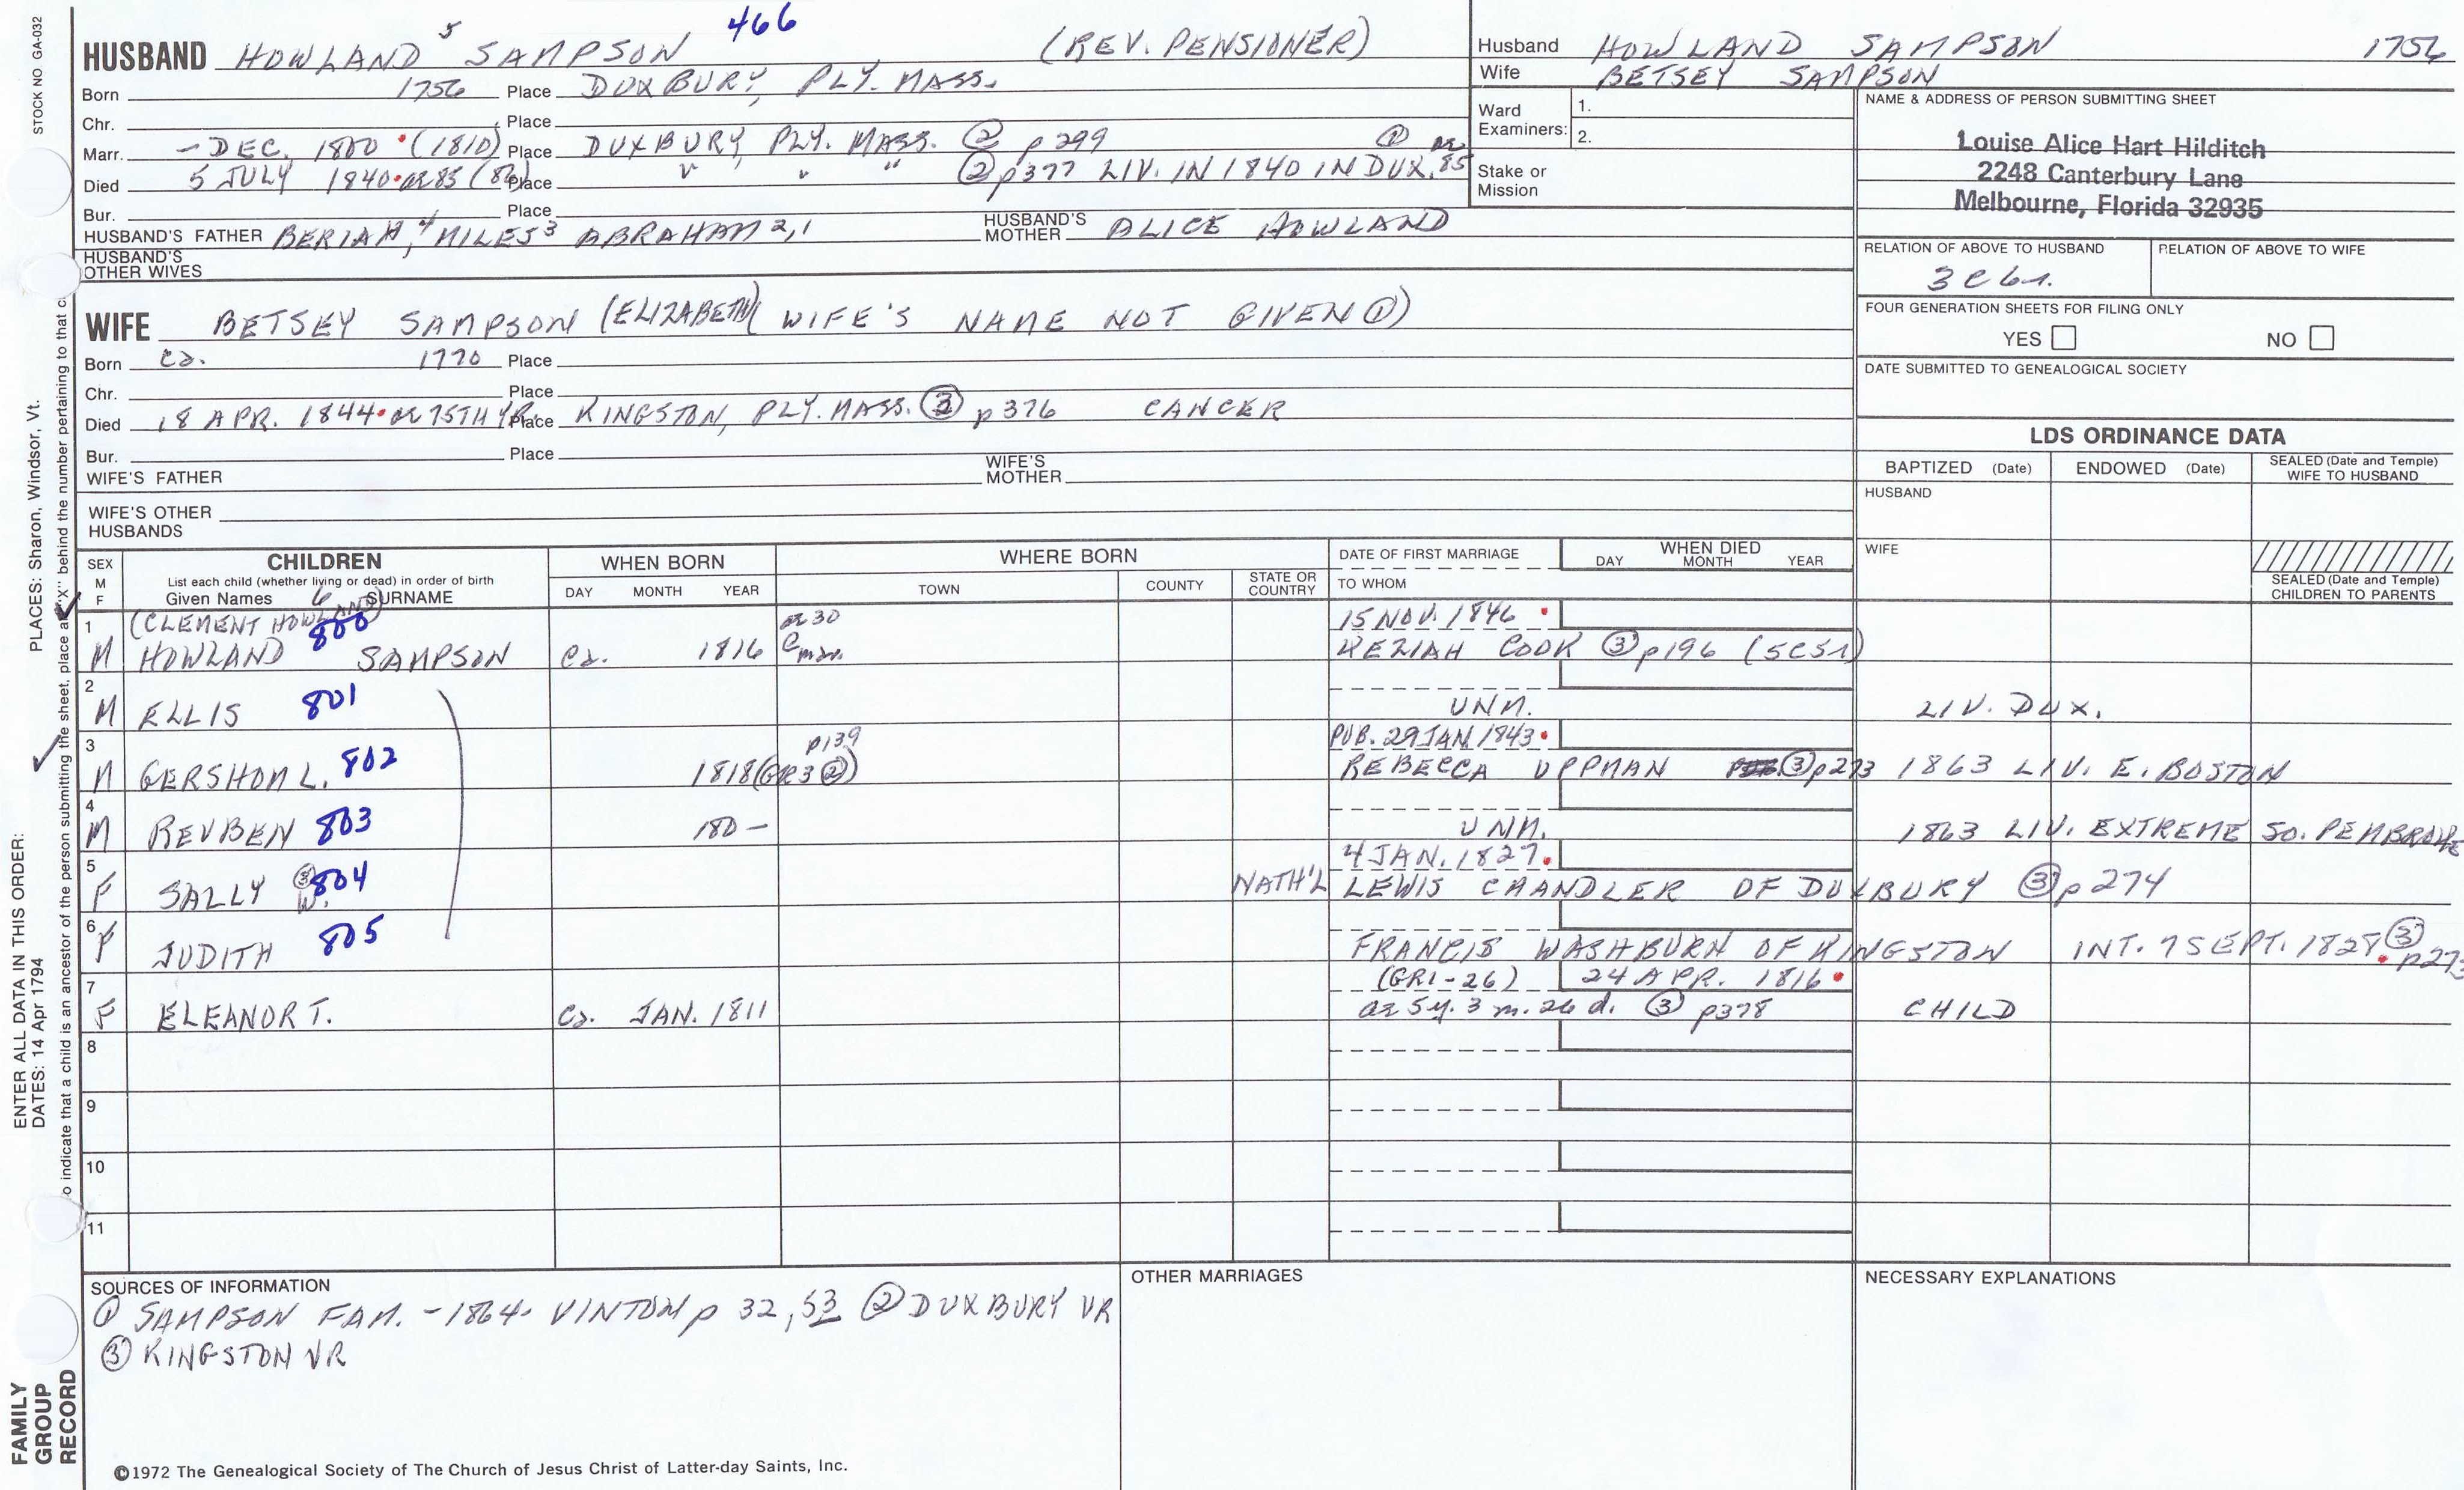 STOCK NO GA-032
466
HUSBAND HOWLAND 5 SAMPSON (REV. PENSIONER)
Born 1756 Place DUXBURY, PLY. MASS.
Chr. Place
Marr. - DEC. 1800 (1810) Place DUXBURY, PLY. MASS. ② p 299
Died 5 JULY 1840 ae 83 (86) Place " " " ② p377 LIV. IN 1840 IN DUX. ① ae 85
Bur. Place
HUSBAND'S FATHER BERIAH,4 MILES3 ABRAHAM 2,1 HUSBAND'S MOTHER ALICE HOWLAND
HUSBAND'S OTHER WIVES
Husband HOWLAND SAMPSON 1756
Wife BETSEY SAMPSON
Ward Examiners: 1.
2.
Stake or Mission
NAME & ADDRESS OF PERSON SUBMITTING SHEET
Louise Alice Hart Hilditch
2248 Canterbury Lane
Melbourne, Florida 32935
RELATION OF ABOVE TO HUSBAND RELATION OF ABOVE TO WIFE
3C6r.
FOUR GENERATION SHEETS FOR FILING ONLY
YES NO
DATE SUBMITTED TO GENEALOGICAL SOCIETY
WIFE BETSEY SAMPSON (ELIZABETH) (WIFE'S NAME NOT GIVEN ①)
Born ca. 1770 Place
Chr. Place
Died 18 APR. 1844 ae 75TH YR. Place KINGSTON, PLY. MASS. ③ p376 CANCER
Bur. Place
WIFE'S FATHER WIFE'S MOTHER
WIFE'S OTHER HUSBANDS
LDS ORDINANCE DATA
BAPTIZED (Date) ENDOWED (Date) SEALED (Date and Temple) WIFE TO HUSBAND
HUSBAND
WIFE
SEALED (Date and Temple) CHILDREN TO PARENTS
SEX M F CHILDREN WHEN BORN WHERE BORN DATE OF FIRST MARRIAGE WHEN DIED
List each child (whether living or dead) in order of birth DAY MONTH YEAR
Given Names 6 SURNAME DAY MONTH YEAR TOWN COUNTY STATE OR COUNTRY TO WHOM
1 (CLEMENT HOWLAND) 800 ae 30 15 NOV. 1846
M HOWLAND SAMPSON ca. 1816 @ mar. KEZIAH COOK ③ p196 (5C51)
2
M ELLIS 801 UNM. LIV. DUX.
3 p139 PUB. 29 JAN. 1843
M GERSHOM L. 802 1818 (GR3 ②) REBECCA UPPMAN ③ p273 1863 LIV. E. BOSTON
4
M REUBEN 803 180- UNM. 1863 LIV. EXTREME SO. PEMBROKE
5 4 JAN. 1827.
F SALLY W. ③ 804 NATH'L LEWIS CHANDLER OF DUXBURY ③ p274
6
F JUDITH 805 FRANCIS WASHBURN OF KINGSTON INT. 7 SEPT. 1828 ③ p273
7 (GR1-26) 24 APR. 1816
F ELEANOR T. ca. JAN. 1811 ae 5y. 3 m. 26 d. ③ p378 CHILD
8
9
10
11
SOURCES OF INFORMATION
① SAMPSON FAM. - 1864 - VINTON p 32, 53 ② DUXBURY VR
③ KINGSTON VR
OTHER MARRIAGES
NECESSARY EXPLANATIONS
©1972 The Genealogical Society of The Church of Jesus Christ of Latter-day Saints, Inc.
FAMILY GROUP RECORD
ENTER ALL DATA IN THIS ORDER:
DATES: 14 Apr 1794
PLACES: Sharon, Windsor, Vt.
o indicate that a child is an ancestor of the person submitting the sheet, place an "X" behind the number pertaining to that c